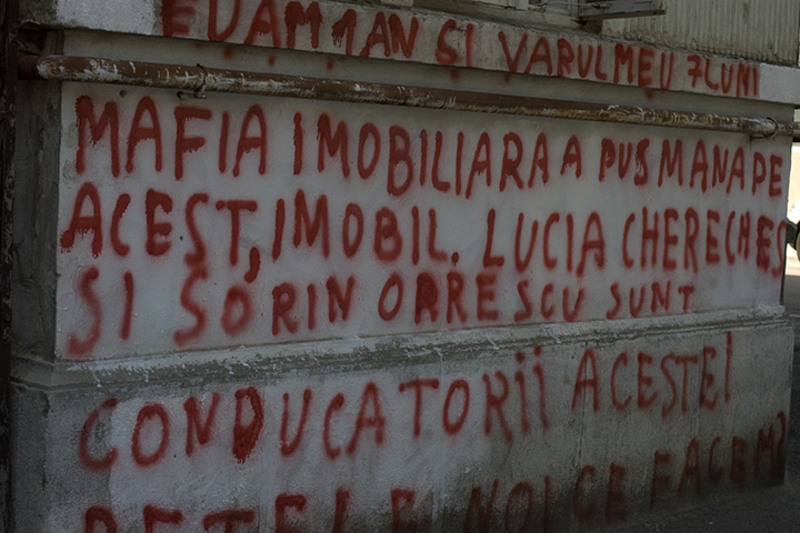 EVAM 1AN ȘI VARUL MEU 7 LUNI
MAFIA IMOBILIARA A PUS MANA PE
ACEST, IMOBIL. LUCIA CHERECHES
SI SORIN OPRESCU SUNT
CONDUCATORII ACESTEI
RETELE NOI CE FACEM?